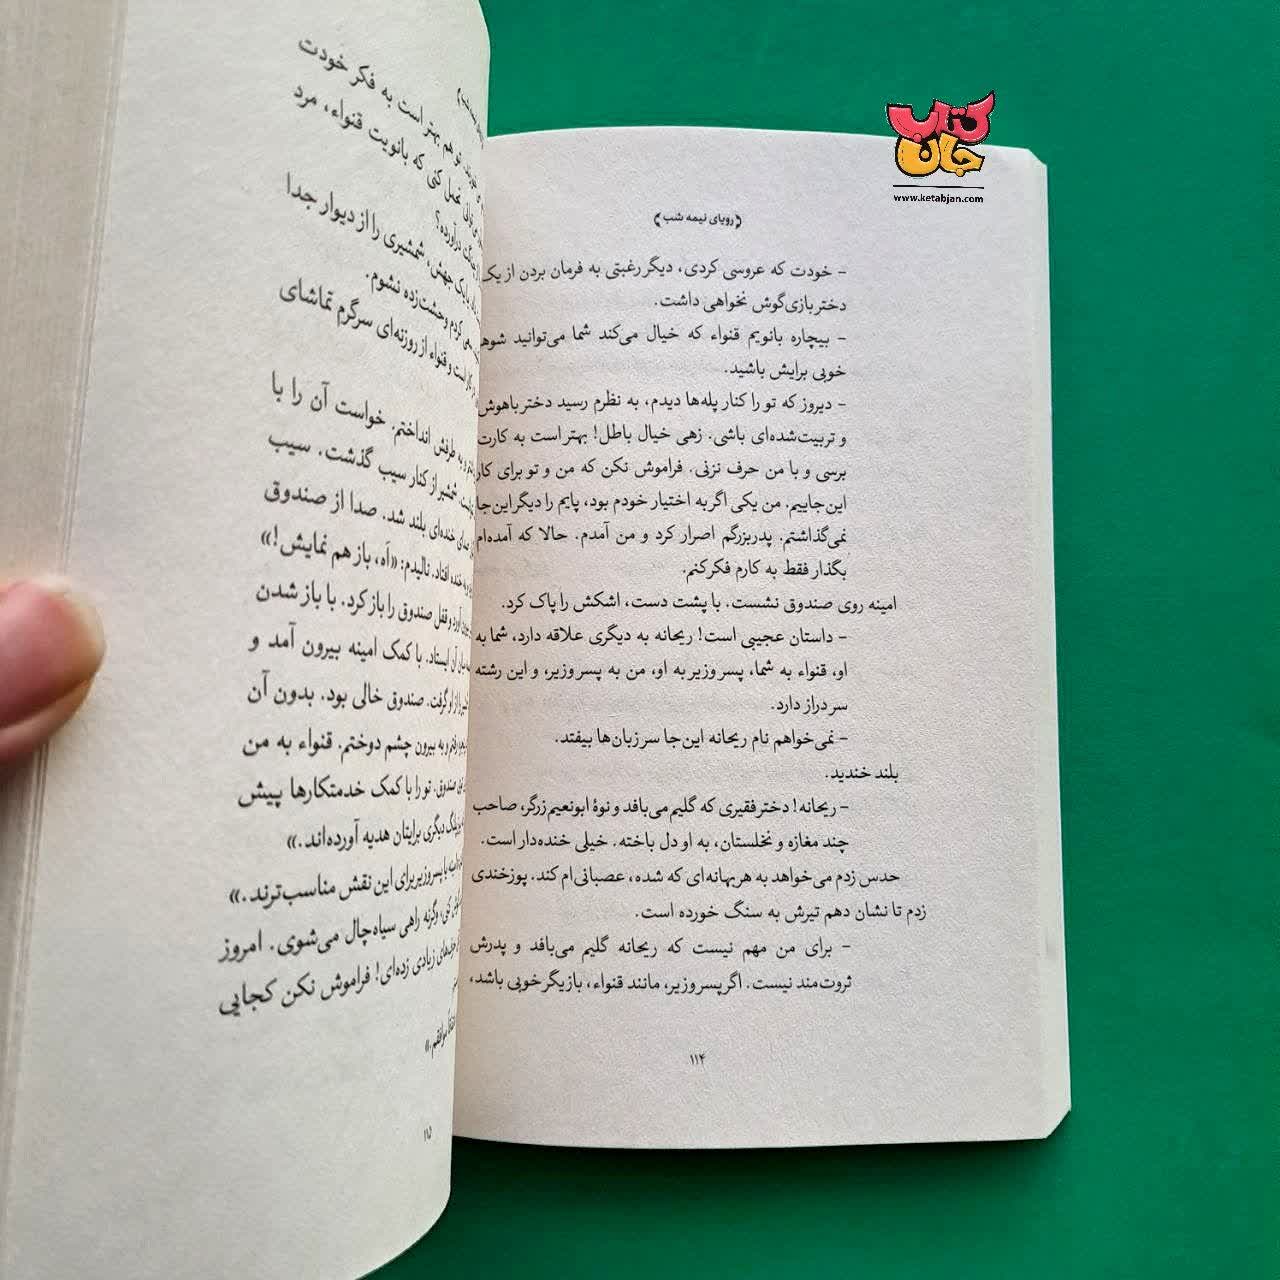 کتاب
جان
www.ketabjan.com
﴿رویای نیمه شب﴾
- خودت که عروسی کردی، دیگر رغبتی به فرمان بردن از یک
دختر بازی‌گوش نخواهی داشت.
- بیچاره بانویم قنواء که خیال می‌کند شما می‌توانید شوهر
خوبی برایش باشید.
- دیروز که تو را کنار پله‌ها دیدم، به نظرم رسید دختر باهوش
و تربیت‌شده‌ای باشی. زهی خیال باطل! بهتر است به کارت
برسی و با من حرف نزنی. فراموش نکن که من و تو برای کار
این‌جاییم. من یکی اگر به اختیار خودم بود، پایم را دیگر این‌جا
نمی‌گذاشتم. پدربزرگم اصرار کرد و من آمدم. حالا که آمده‌ام
بگذار فقط به کارم فکر کنم.
امینه روی صندوق نشست. با پشت دست، اشکش را پاک کرد.
- داستان عجیبی است! ریحانه به دیگری علاقه دارد، شما به
او، قنواء به شما، پسر وزیر به او، من به پسر وزیر، و این رشته
سر دراز دارد.
- نمی‌خواهم نام ریحانه این‌جا سر زبان‌ها بیفتد.
بلند خندید.
- ریحانه! دختر فقیری که گلیم می‌بافد و نوهٔ ابونعیم زرگر، صاحب
چند مغازه و نخلستان، به او دل باخته. خیلی خنده‌دار است.
حدس زدم می‌خواهد به هر بهانه‌ای که شده، عصبانی‌ام کند. پوزخندی
زدم تا نشان دهم تیرش به سنگ خورده است.
- برای من مهم نیست که ریحانه گلیم می‌بافد و پدرش
ثروت‌مند نیست. اگر پسر وزیر، مانند قنواء، بازیگر خوبی باشد،
۱۱۴
تو هم بهتر است به فکر خودت
تحمل کنی که بانویت قنواء، مرد
درآورده؟
یک جهش، شمشیری را از دیوار جدا
کردم وحشت‌زده نشوم.
است و قنواء از روزنه‌ای سرگرم تماشای
و به طرفش انداختم. خواست آن را با
شمشیر از کنار سیب گذشت. سیب
صدای خنده‌ای بلند شد. صدا از صندوق
به خنده افتاد. نالیدم: «آه، باز هم نمایش!»
آورد و قفل صندوق را باز کرد. با باز شدن
آن ایستاد. با کمک امینه بیرون آمد و
را از او گرفت. صندوق خالی بود. بدون آن
و به بیرون چشم دوختم. قنواء به من
صندوق. تو را با کمک خدمتکارها پیش
پلنگ دیگری برایتان هدیه آورده‌اند.»
یا پسر وزیر برای این نقش مناسب‌ترند.»
کنی، وگرنه راهی سیاه‌چال می‌شوی. امروز
حرف‌های زیادی زده‌ای! فراموش نکن کجایی
موافقم.»
۱۱۵